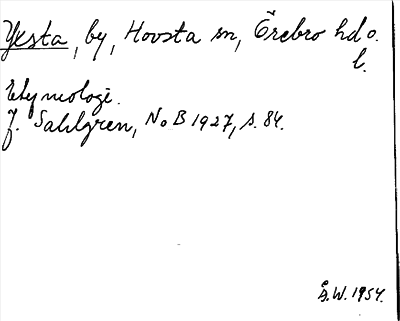 Yxsta, by, Hovsta sn, Örebro hd o.
l.
Etymologi.
J. Sahlgren, NoB 1927, s. 84.
Å.W. 1954.